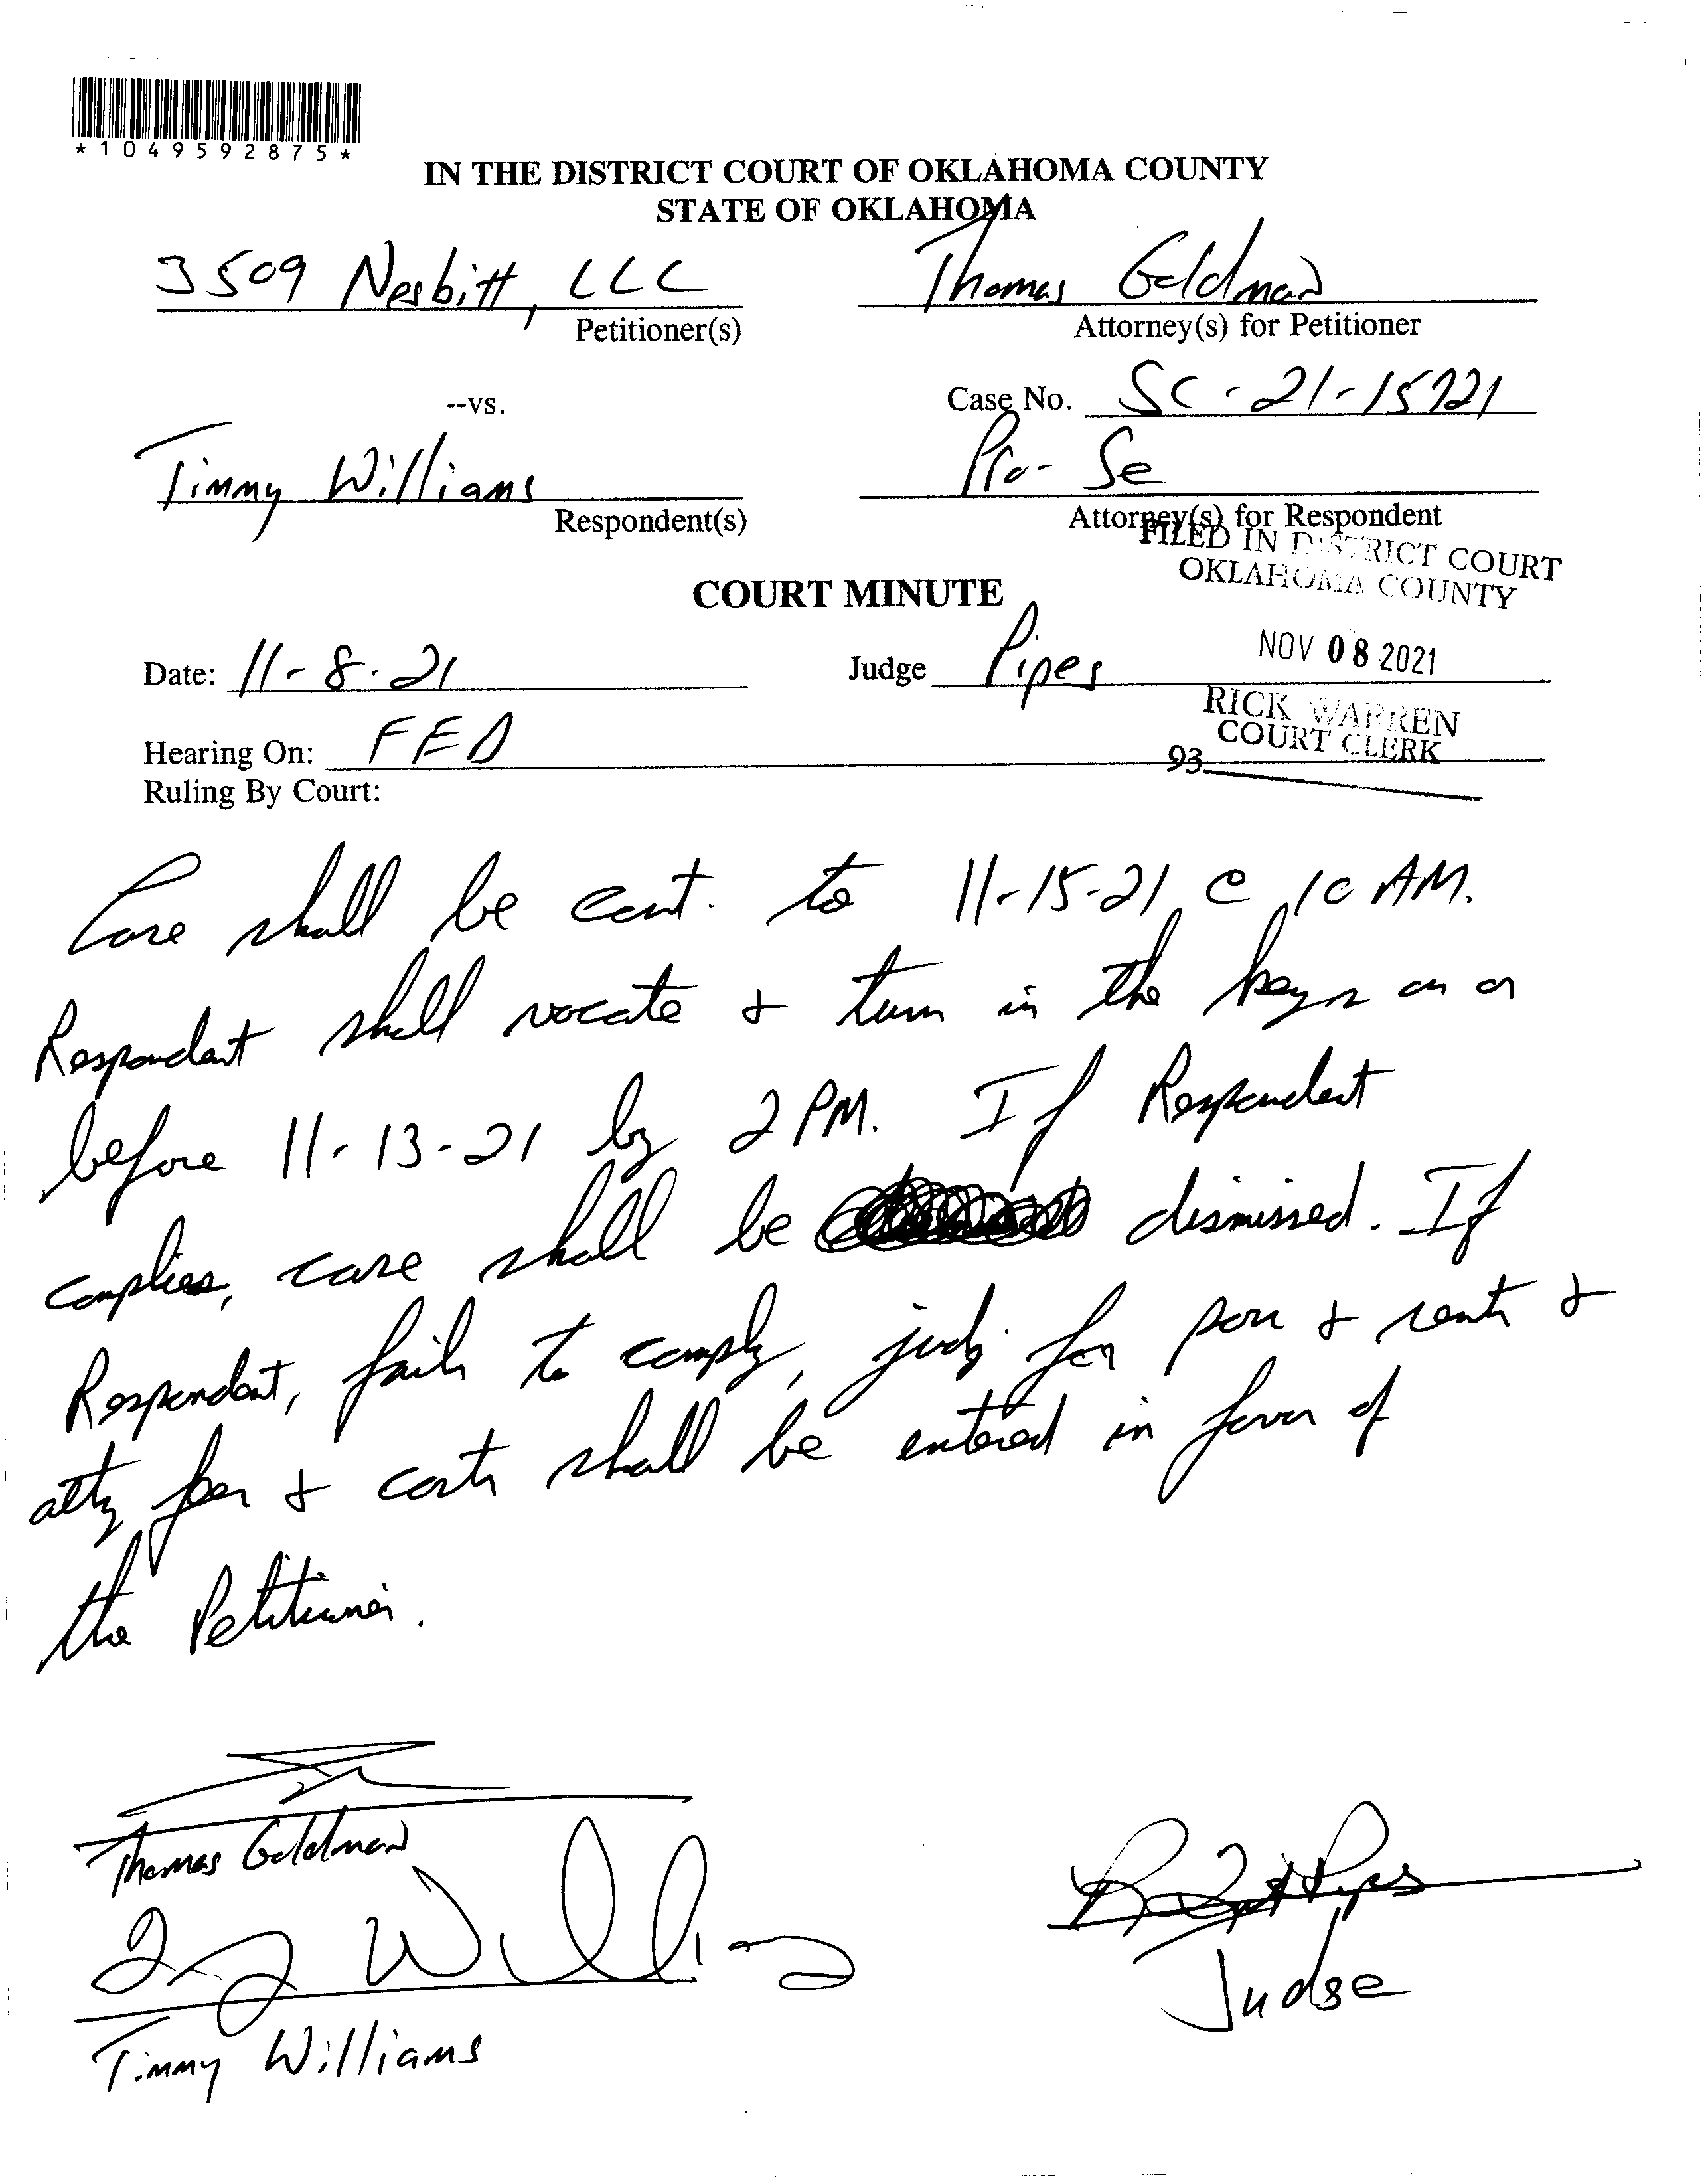 *1049592875*
IN THE DISTRICT COURT OF OKLAHOMA COUNTY
STATE OF OKLAHOMA
3509 Nesbitt, LLC
Thomas Goldman
Petitioner(s)
Attorney(s) for Petitioner
--vs.
Case No. SC-21-15721
Timmy Williams
Pro-Se
Respondent(s)
Attorney(s) for Respondent
FILED IN DISTRICT COURT
OKLAHOMA COUNTY
COURT MINUTE
NOV 08 2021
Date: 11-8-21
Judge Pipes
RICK WARREN
COURT CLERK
Hearing On: FED
93
Ruling By Court:
Case shall be cont. to 11-15-21 @ 10 AM.
Respondent shall vacate & turn in the keys on or
before 11-13-21 by 2 PM. If Respondent
complies, case shall be dismissed. If
Respondent, fails to comply, judg. for poss & rents &
atty fees & costs shall be entered in favor of
the Petitioner.
Thomas Goldman
Timmy Williams
Judge